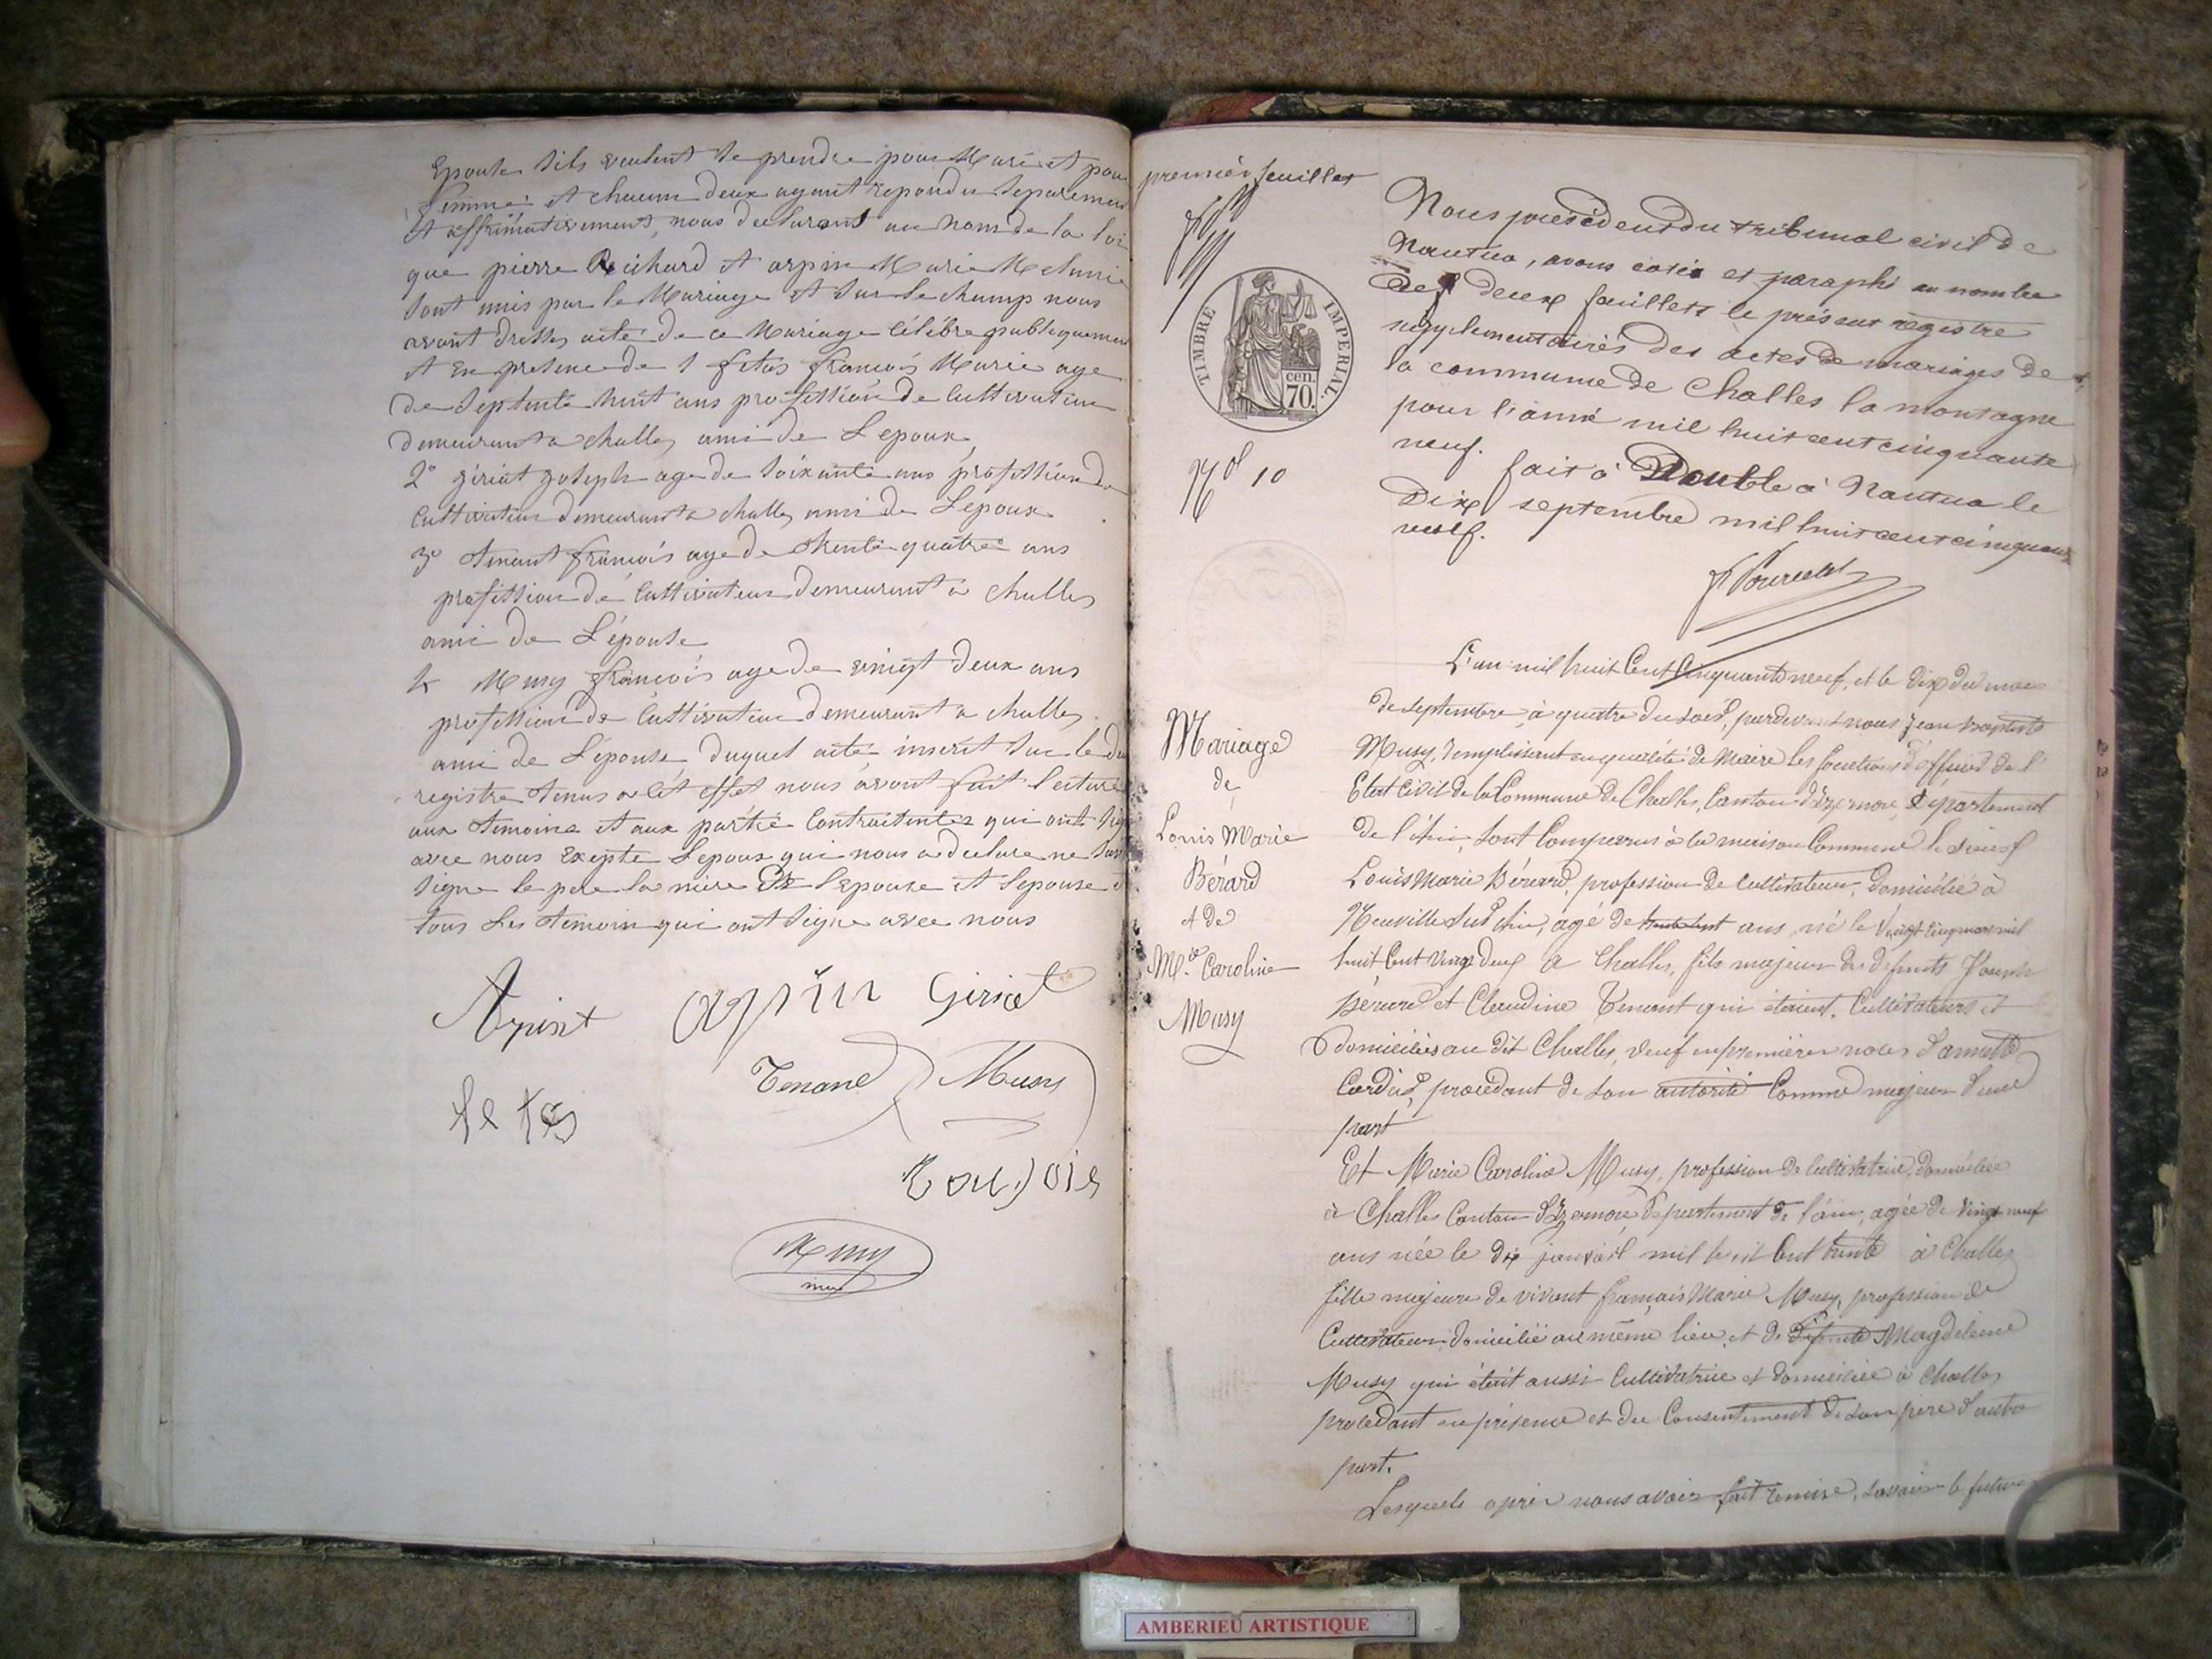 Epouse sils veulent se prendre pour Mari et pour
femme et chacun deux ayant repondu Separement
et affirmativement, nous declarons au nom de la loi
que pierre Richard et arpin Marie Melanie
sont unis par le Mariage et sur le champ nous
avont dresses acte de ce Mariage Célébre publiquement
et En presence de 1 fetas françois Marie age
de Septente huit ans profession de Cultivateur
demeurant a challes ami de Lepoux
2º giriat joseph age de soixante ans profession de
Cultivateur demeurant a challes ami de Lepoux
3º tenant françois age de trente quatre ans
profession de Cultivateur demeurant a challes
ami de L'épouse
4 Musy françois age de vingt deux ans
profession de Cultivateur demeurant a challes
ami de Lépouse duquel acte inscrit sur le
registre tenus a cet effet nous avont fait lecture
aux temoins et aux partie Contractentes qui ont
avec nous Exepte Lepoux qui nous a declare ne
signe le pere la mere de lepouse et lepouse et
tous Les temoin qui ont signe avec nous
arpin Giriat
Tenand Musy
fetas
Musy
premier feuillet
TIMBRE IMPERIAL
cen.
70.
Nº 10
Nous président du tribunal civil de
Nantua, avons coté et paraphé au nombre
de deux feuillets le présent registre
supplementaires des actes de mariages de
la commune de Challes la montagne
pour l'anné mil huit cent cinquante
neuf.
fait à Double à Nantua le
Dix septembre mil huit cent cinquante
neuf.
Mariage
de
Louis Marie
Bérard
et de
Mie Caroline
Musy
L'an mil huit Cent Cinquante neuf, et le dix du mois
de septembre, à quatre du soir, pardevant nous Jean Baptiste
Musy, remplissant en qualité de Maire les fonctions d'officier de l'
Etat Civil de la Commune de Challes, Canton d'Izernore, département
de l'Ain, sont Comparus à la maison Commune le sieur
Louis Marie Bérard, profession de Cultivateur, domicilié à
Neuville sur Ain, agé de trente sept ans, né le Vingt Cinq mars mil
huit Cent vingt deux à Challes, fils majeur des defunts Joseph
Bérard et Claudine Tenant qui étaient Cultivateurs et
domiciliés au dit Challes, veuf en premières noces d'annette
Cordier, procédant de son autorité Comme majeur d'une
part
Et Marie Caroline Musy, profession de Cultivatrice, domiciliée
à Challes Canton d'Izernore département de l'ain, agée de Vingt neuf
ans née le dix janvier mil huit Cent trente à Challes
fille majeure de vivant françois Marie Musy, profession de
Cultivateur domicilié au même lieu, et de défunte Magdeleine
Musy qui était aussi Cultivatrice et domiciliée à Challes
procédant en présence et du Consentement de son pere d'autre
part.
Lesquels après nous avoir fait remise, savoir le futur
AMBERIEU ARTISTIQUE